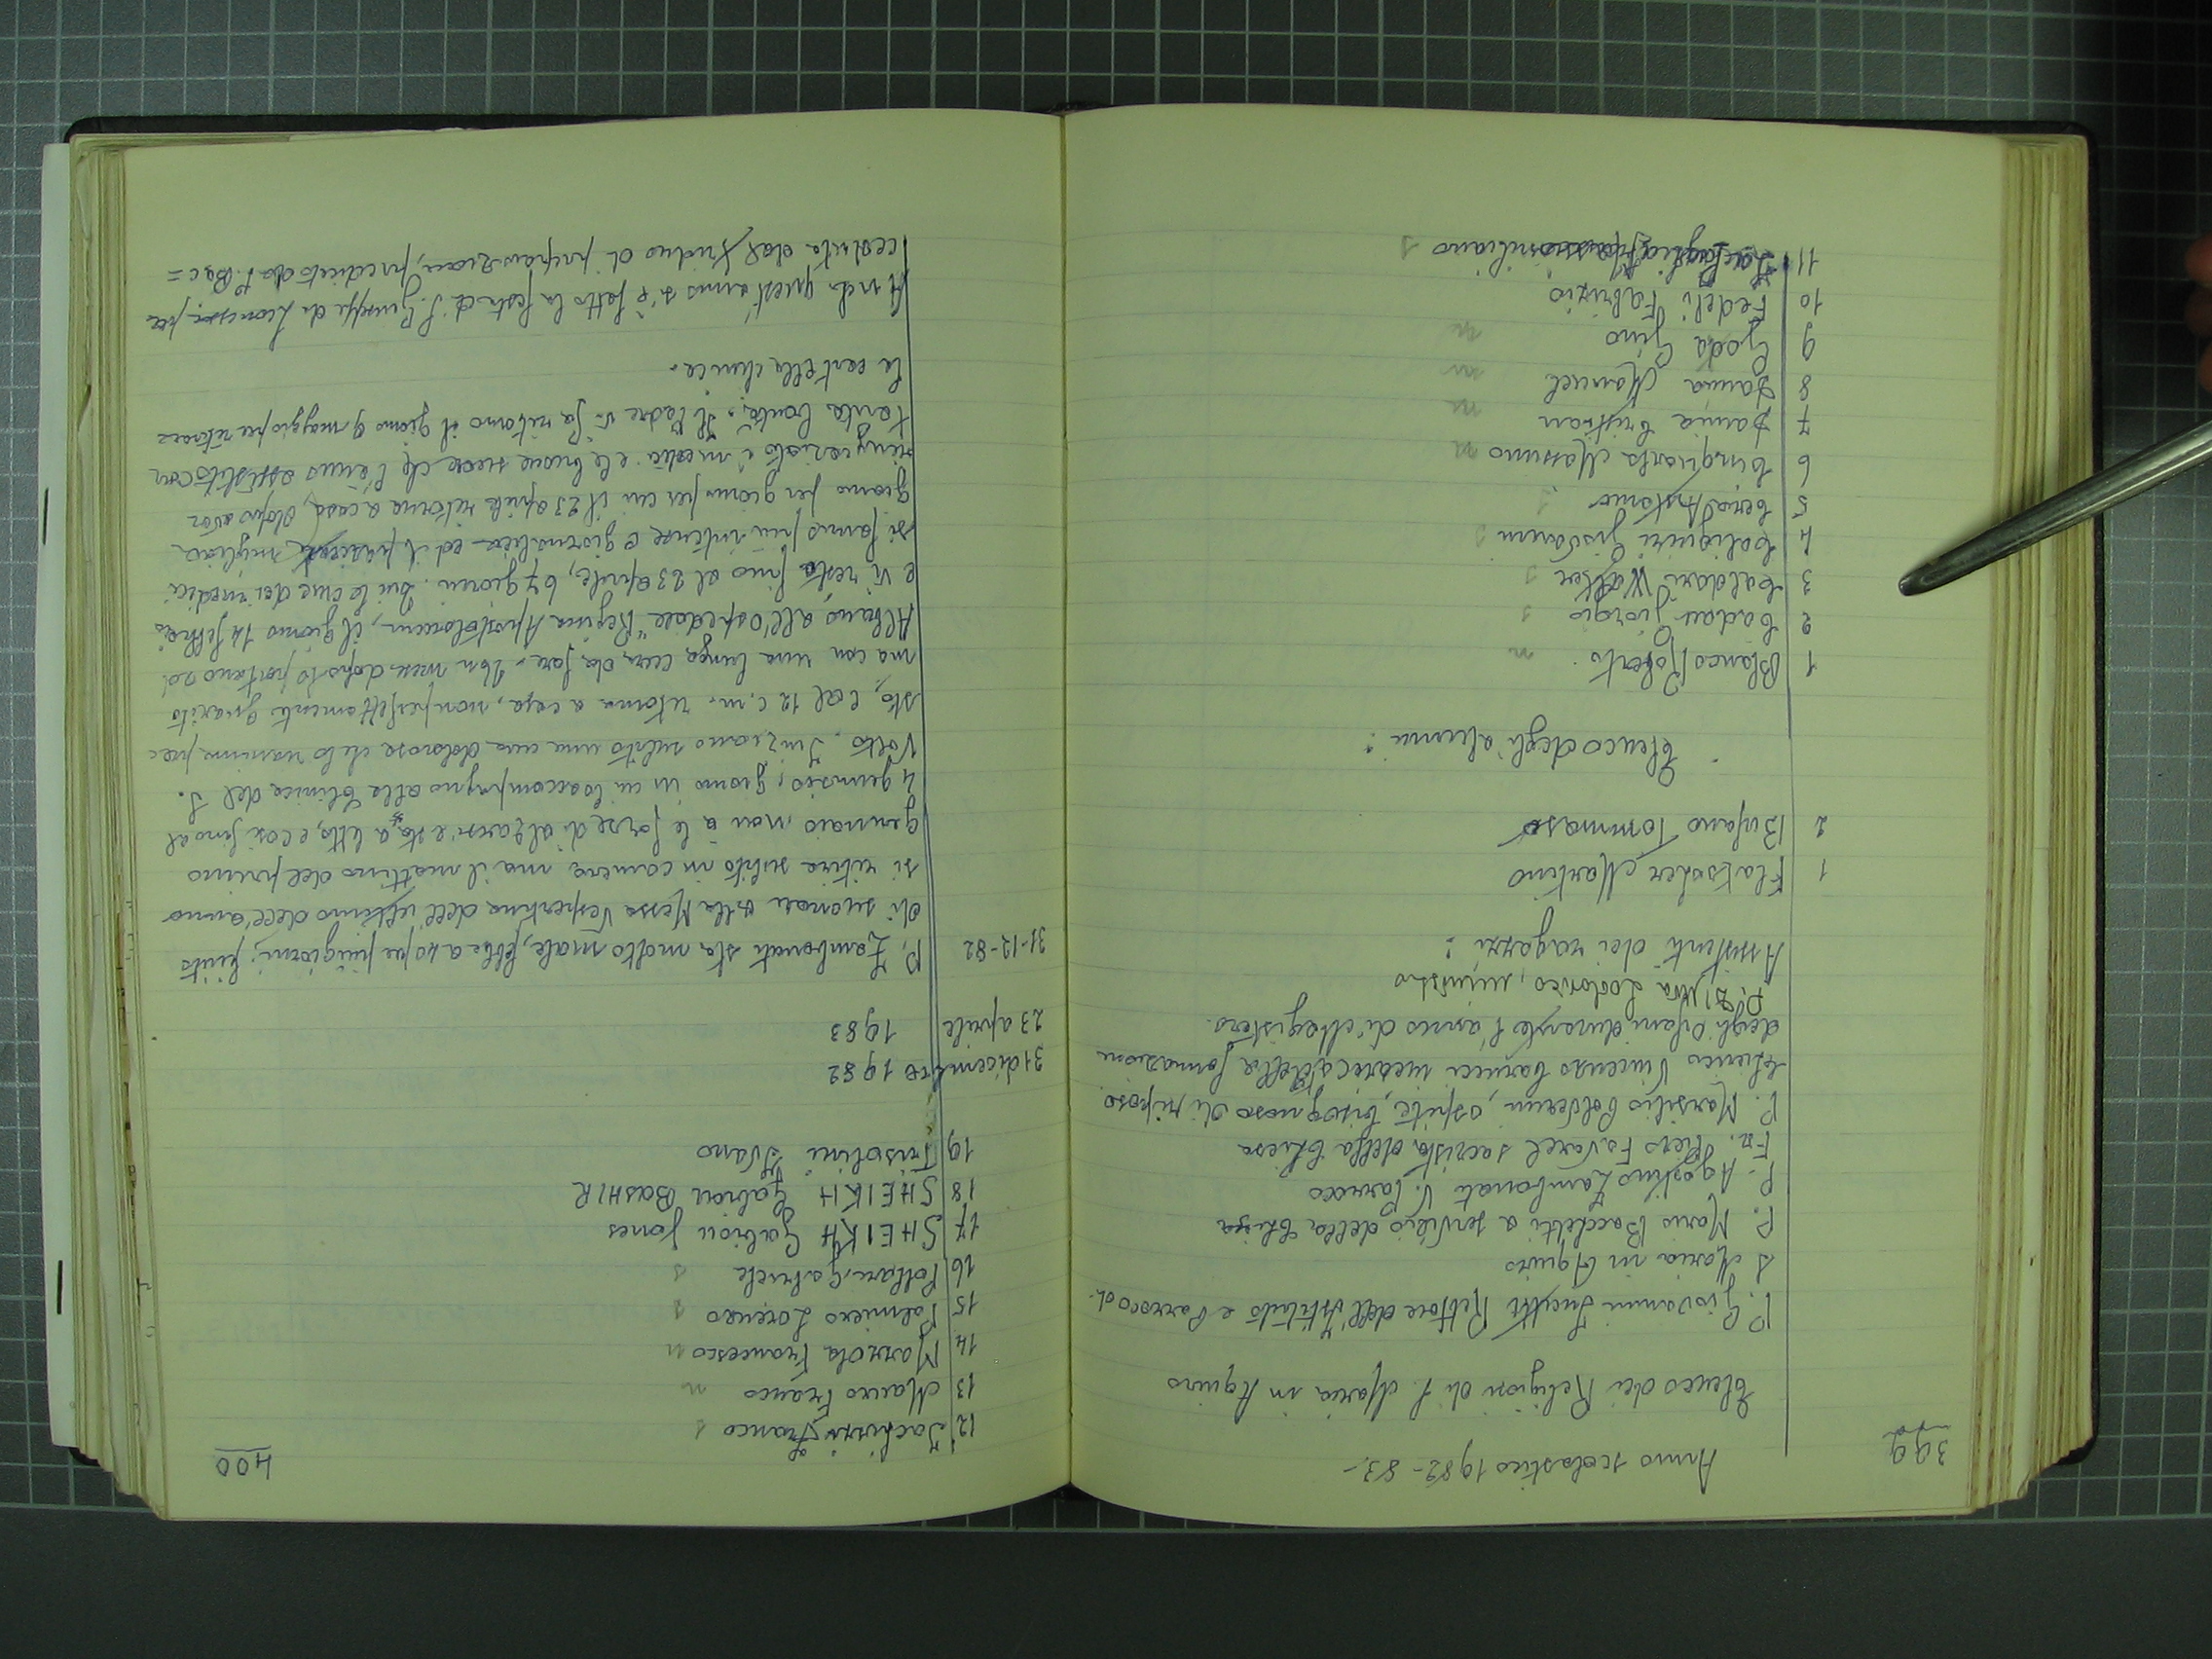 399
Anno scolastico 1982-83.-
Elenco dei Religiosi di S. Maria in Aquiro
P. Giovanni Rettore dell'Istituto e Parroco di
S Maria in Aquiro
P. Mario Bacchetti a servizio della Chiesa
P. Agostino Zambonati V. Parroco
Fr. Piero Favarel sacrista della Chiesa
P. Marsilio ospite, bisognoso di riposo
Chierico Vincenzo incaricato della formazione
degli Orfani durante l'anno di Magistero.
P. Lodovico, ministro
Assistenti dei ragazzi:
1 Martino
2 Bufano Tommaso
Elenco degli alunni:
1 Blanco Roberto n
2 Cadau Giorgio s
3 Caldari Walter s
4 Caliguiri Giovanni s
5 Antonio
6 Cinquanta Massimo n
7 Danna Cristian n
8 Danna Manuel m
9 Goda Gino m
10 Fedeli Fabrizio
11 Massimiliano s
400
12 Franco s
13 Mauro Franco n
14 Marzola Francesco n
15 Palmiero Lorenzo s
16 Pollari Gabriele s
17 SHEIKH Gabriou Jones
18 SHEIKH Gabriou BASHIR
19 Trisolini Ivano
31 dicembre 1982
23 aprile 1983
31-12-82 P. Zambonati sta molto male, febbre a 40 per più giorni; finito
di suonare alla Messa Vespertina dell'ultimo dell'anno
si ritira subito in camera ma il mattino del primo
gennaio non à le forze di alzarsi e sta a letto, e così fino al
4 gennaio; giorno in cui lo accompagno alla Clinica del S.
Volto. Iniziano subito una cura dolorosa che lo
e al 12 c.m. ritorna a casa, non perfettamente guarito
ma con una lunga cura da fare. Un mese dopo lo portano ad
Albano, all'Ospedale "Regina Apostolorum, il giorno 14 febbraio
e vi resta fino al 23 aprile, 67 giorni. Qui le cure dei medici
si fanno più intense e giornaliere ed il paziente migliora
giorno per giorno per cui il 23 aprile ritorna a casa, dopo aver
ringraziato i medici e le buone suore che l'ànno assistito con
tanta bontà. Il Padre vi fa ritorno il giorno 9 maggio per ritirare
la cartella clinica.
Anche quest'anno s'è fatto la festa di S. Giuseppe da Leonessa, pre
ceduta dal triduo di preparazione, predicato da P. Bac=